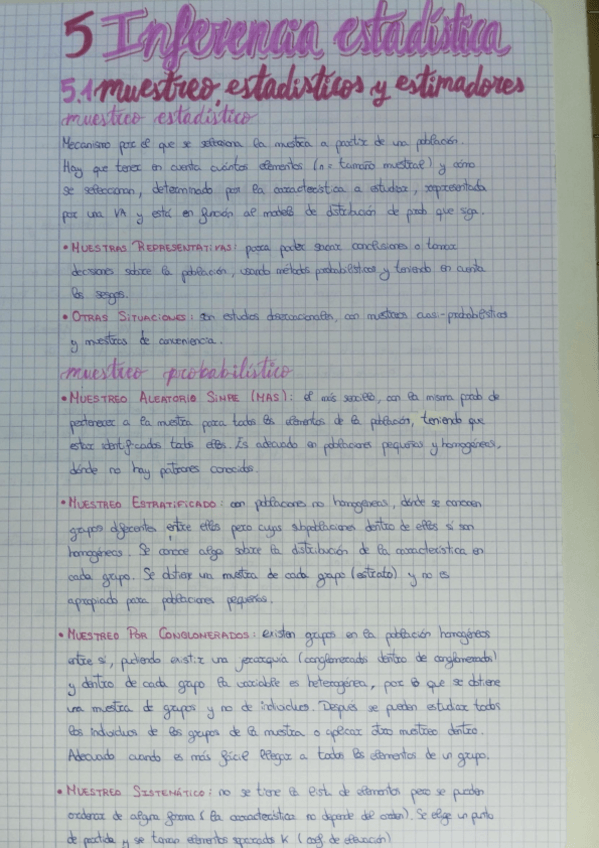 5 Inferencia estadística
5.1 muestreo, estadísticos y estimadores
muestreo estadístico
Mecanismo por el que se selecciona la muestra a partir de una población.
Hay que tener en cuenta cuántos elementos (n = tamaño muestral) y cómo
se seleccionan, determinado por la característica a estudiar, representada
por una VA y está en función al modelo de distribución de prob que siga.
• MUESTRAS REPRESENTATIVAS: para poder sacar conclusiones o tomar
decisiones sobre la población, usando métodos probabilísticos y teniendo en cuenta
los sesgos.
• OTRAS SITUACIONES: son estudios observacionales, con muestreos cuasi-probabilísticos
y muestras de conveniencia.
muestreo probabilístico
• MUESTREO ALEATORIO SIMPE (MAS): el más sencillo, con la misma prob de
pertenecer a la muestra para todos los elementos de la población, teniendo que
estar identificados todos ellos. Es adecuado en poblaciones pequeñas y homogéneas,
dónde no hay patrones conocidos.
• MUESTREO ESTRATIFICADO: con poblaciones no homogéneas, dónde se conocen
grupos diferentes entre ellos pero cuyas subpoblaciones dentro de ellos sí son
homogéneas. Se conoce algo sobre la distribución de la característica en
cada grupo. Se obtiene una muestra de cada grupo (estrato) y no es
apropiado para poblaciones pequeñas.
• MUESTREO POR CONGLOMERADOS: existen grupos en la población homogéneos
entre sí, pudiendo existir una jerarquía (conglomerados dentro de conglomerados)
y dentro de cada grupo la variable es heterogénea, por lo que se obtiene
una muestra de grupos y no de individuos. Después se pueden estudiar todos
los individuos de los grupos de la muestra o aplicar otro muestreo dentro.
Adecuado cuando es más fácil llegar a todos los elementos de un grupo.
• MUESTREO SISTEMÁTICO: no se tiene la lista de elementos pero se pueden
ordenar de alguna forma (la característica no depende del orden). Se elige un punto
de partida y se toman elementos separados K (coef. de elevación)